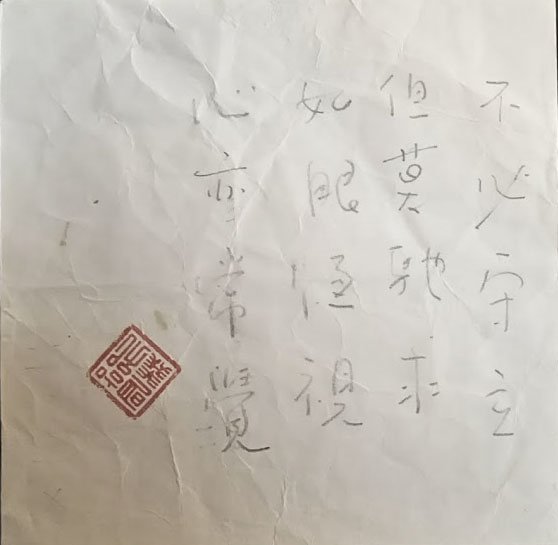 不必守立
但莫馳求
如眼恆視
心亦常覺